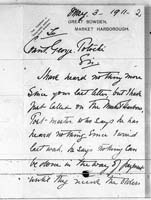 May 3 - 1911.
GREAT BOWDEN,
MARKET HARBOROUGH.
To
Count George Potocki
Sir
I have heard nothing more
since your last letter, but I have
just called on the Market Harboro
Post-master who says he has
heard nothing since I wired
last week. He says nothing can
be done in the way of payment
until they receive the